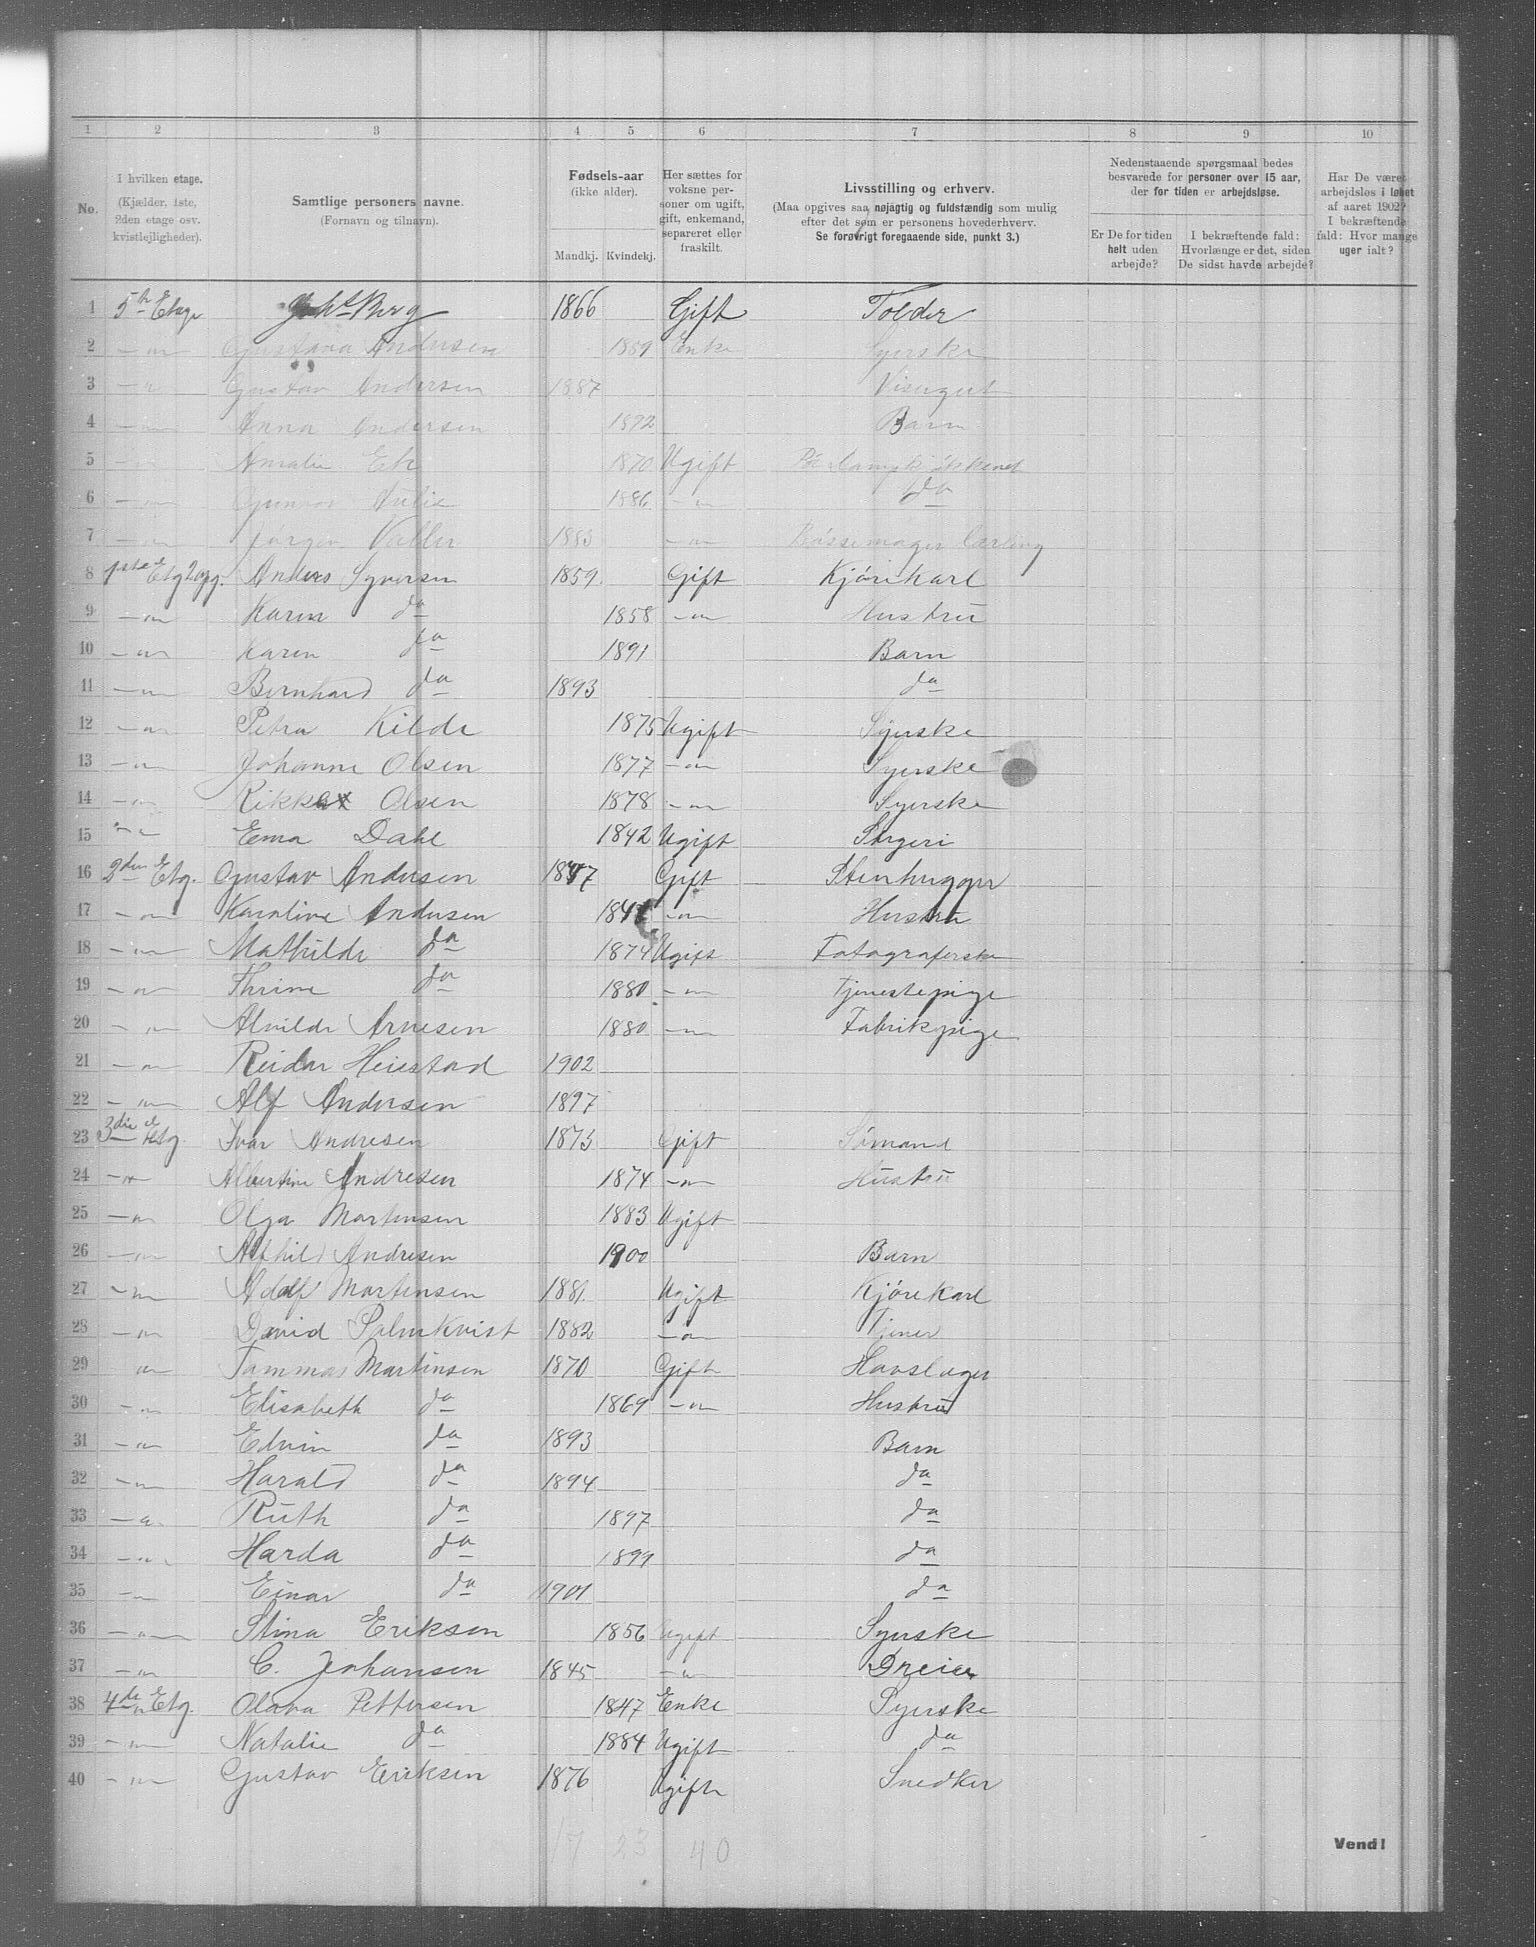 1 2 3 4 5 6 7 8 9 10
No.
I hvilken etage.
(Kjælder, 1ste,
2den etage osv.
kvistlejligheder).
Samtlige personers navne.
(Fornavn og tilnavn).
Fødsels-aar
(ikke alder).
Mandkj. Kvindekj.
Her sættes for
voksne per-
soner om ugift,
gift, enkemand,
separeret eller
fraskilt.
Livsstilling og erhverv.
(Maa opgives saa nøjagtig og fuldstændig som mulig
efter det som er personens hovederhverv.
Se forøvrigt foregaaende side, punkt 3.)
Nedenstaaende spørgsmaal bedes
besvarede for personer over 15 aar,
der for tiden er arbejdsløse.
Er De for tiden
helt uden
arbejde?
I bekræftende fald:
Hvorlænge er det, siden
De sidst havde arbejde?
Har De været
arbejdsløs i løbet
af aaret 1902?
I bekræftende
fald: Hvor mange
uger ialt?
1 5te Etage Berg 1866 Gift Tolder
2 —"— Gustava Andersen 1859 Enke Syerske
3 —"— Gustav Andersen 1887 Visergut
4 —"— Anna Andersen 1892 Barn
5 —"— Amalie Ek 1870 Ugift
6 —"— Julie 1886 —"— do
7 —"— Jørgen 1883 —"— Bøssemager Lærling
8 1ste Etg 2 opg. Anders Syversen 1859 Gift Kjørekarl
9 —"— Karen do 1858 —"— Hustru
10 —"— Karen do 1891 Barn
11 —"— Bernhard do 1893 do
12 —"— Petra Kilde 1875 Ugift Syerske
13 —"— Johanne Olsen 1877 —"— Syerske
14 —"— Rikka Olsen 1878 —"— Syerske
15 —"— Ema Dahl 1842 Ugift
16 2den Etg. Gustav Andersen 1847 Gift Stenhugger
17 —"— Karoline Andersen —"— Hustru
18 —"— Mathilde do 1874 Ugift Fotograferske
19 —"— Thrine do 1880 —"— Tjenestepige
20 —"— Alvilde Arnesen 1880 —"— Fabrikpige
21 —"— Reidar Heiestad 1902
22 —"— Alf Andersen 1897
23 3die Etg Ivar Andresen 1873 Gift Sømand
24 —"— Albertine Andresen 1874 —"— Hustru
25 —"— Olga Martinsen 1883 Ugift
26 —"— Andresen 1900 Barn
27 —"— Adolf Martinsen 1881 Ugift Kjørekarl
28 —"— David Palmkvist 1882 —"— Tjener
29 —"— Tommas Martinsen 1870 Gift Hovslager
30 —"— Elisabeth do 1869 —"— Hustru
31 —"— Edvin do 1893 Barn
32 —"— Harald do 1894 do
33 —"— Ruth do 1897 do
34 —"— Harda do 1899 do
35 —"— Einar do 1901 do
36 —"— Stina Eriksen 1856 Ugift Syerske
37 —"— C. Johansen 1845 —"— Dreier
38 4de Etg. Olava Pettersen 1847 Enke Syerske
39 —"— Natalie do 1884 Ugift do
40 —"— Gustav Eriksen 1876 Ugift Snedker
17 23 40
Vend!